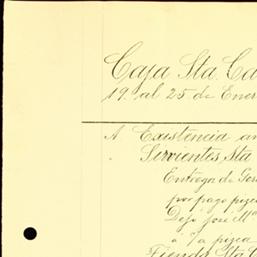 Caja Sta. Ca
19. al 25 de Ener
A Existencia an
Sirvientes Sta
Entrega de Gor
por pago pizca
Dejo José Ma
a 7a pizca
Tienda Sta C